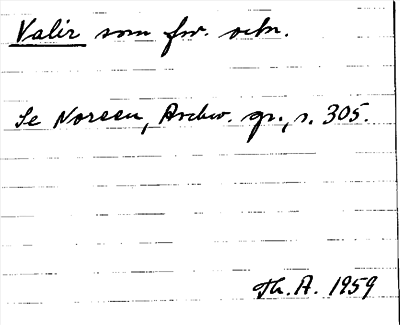 Valir som fw. ochr.
Se Noreen, Aschw. gr., s. 305.
Th. A. 1959